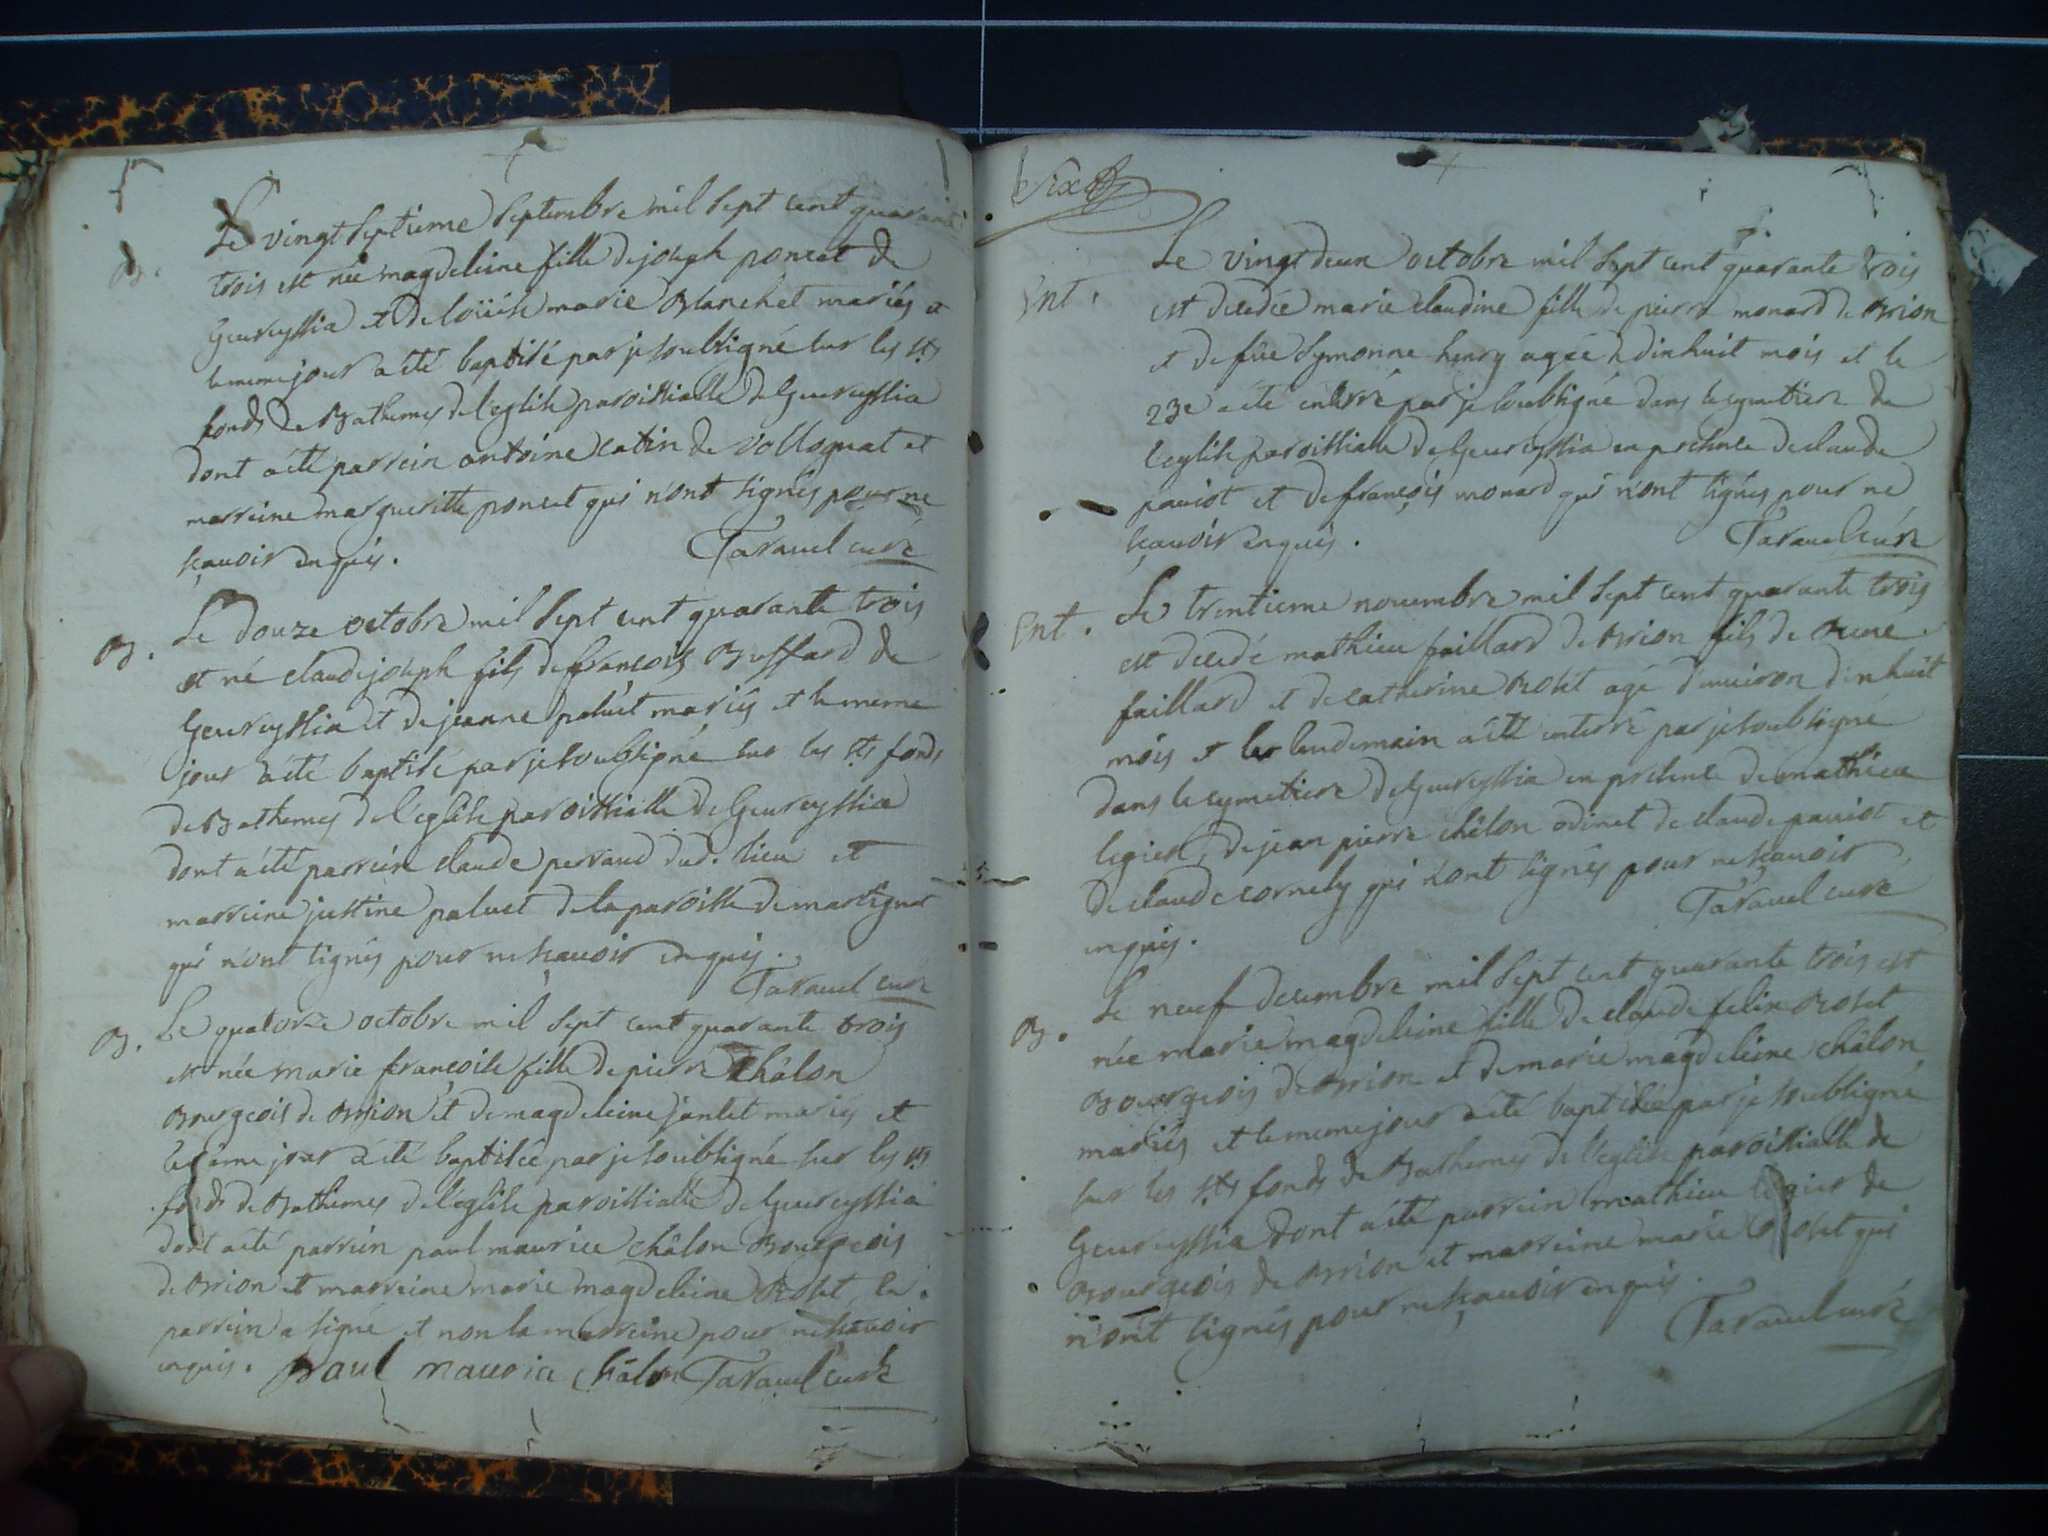 B.
Le vingt septieme septembre mil sept cent quarante
trois est née magdeleine fille de joseph poncet de
Geureyssia et de loüise marie Blanchet mariés et
le meme jour a été baptisé par je soubsigné sur les sts
fonds de Bathemes de l'eglise paroissialle de Geureyssia
dont a été parrein antoine catin de Vollognat et
marreine margueritte poncet qui n'ont signés pour ne
sçauoir enquis. Tarauel curé
B.
Le douze octobre mil sept cent quarante trois
est né claude joseph fils de françois Buffard de
Geureyssia et de jeanne paluet mariés et le meme
jour a été baptisé par je soubsigné sur les sts fonds
de Bathemes de l'eglise paroissialle de Geureyssia
dont a été parrein claude perraud dud. lieu et
marreine justine paluet de la paroisse de martignat
qui n'ont signés pour ne sçauoir enquis.
Tarauel curé
B.
Le quatorze octobre mil sept cent quarante trois
est née marie françoise fille de pierre Châlon
Bourgeois de Brion et de magdeleine janlet mariés et
le même jour a été baptisée par je soubsigné sur les sts
fonds de Bathemes de l'eglise paroissialle de Geureyssia
dont a été parrein paul maurice châlon Bourgeois
de Brion et marreine marie magdeleine Roset, le
parrein a signé et non la marreine pour ne sçauoir
enquis. paul mauric châlon Tarauel curé
Six
Ent.
Le vingt deux octobre mil sept cent quarante trois
est decedée marie claudine fille de pierre monard de Brion
et de füe symonne henry agée de dixhuit mois et le
23e a été enterré par je soubsigné dans le cymetiere de
l'eglise paroissialle de Geureyssia en presence de claude
pauiot et de françois monard qui n'ont signés pour ne
sçauoir enquis. Tarauel curé
Ent.
Le trentieme nouembre mil sept cent quarante trois
est decedé mathieu faillard de Brion fils de Rene
faillard et de catherine Roset agé d'enuiron dixhuit
mois et le lendemain a été enterré par je soubsigné
dans le cymetiere de Geureyssia en presence de mathieu
legier, de jean pierre châlon odinet de claude pauiot et
de claude cornely qui n'ont signés pour ne sçauoir
enquis. Tarauel curé
B.
Le neuf decembre mil sept cent quarante trois est
née marie magdeleine fille de claude felix Roset
Bourgeois de Brion et de marie magdeleine châlon
mariés et le meme jour a été baptisée par je soubsigné
sur les sts fonds de Bathemes de l'eglise paroissialle de
Geureyssia dont a été parrein mathieu legier de
Bourgeois de Brion et marreine marie Roset qui
n'ont signés pour ne sçauoir enquis.
Tarauel curé